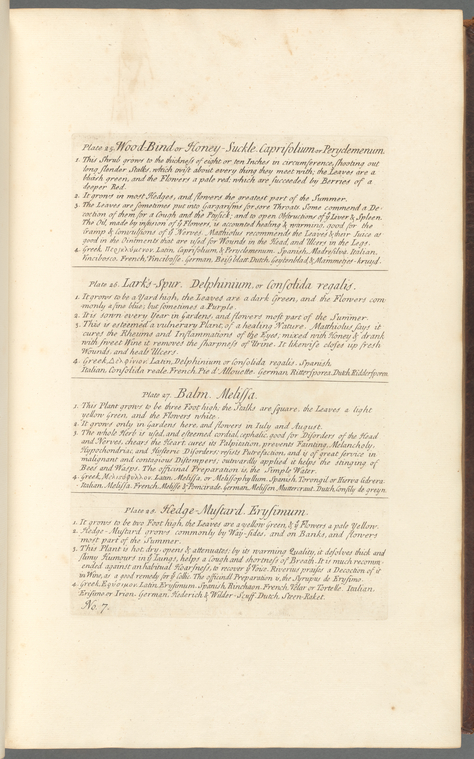 Plate 25. Wood-Bind or Honey-Suckle. Caprifolium or Peryclemenum.
1. This Shrub grows to the thickness of eight or ten Inches in circumference, shooting out
long slender Stalks, which twist about every thing they meet with; the Leaves are a
bluish green, and the Flowers a pale red, which are succeeded by Berries of a
deeper Red.
2. It grows in most Hedges, and flowers the greatest part of the Summer.
3. The Leaves are sometimes put into Gargarisms for sore Throats. Some commend a De-
coction of them for a Cough and the Ptisick; and to open Obstructions of ye Liver & Spleen.
The Oil, made by infusion of ye Flowers, is accounted healing & warming, good for the
Cramp & Convulsions of ye Nerves. Matthiolus recommends the Leaves & their Juice as
good in the Ointments that are used for Wounds in the Head, and Ulcers in the Legs.
4. Greek, Latin, Caprifolium, & Periclemenum. Spanish, Madresilva. Italian,
Vincibosco. French, Cheureseuille. German, Dutch, & Mammetjes-kruyd.
Plate 26. Lark's-Spur. Delphinium, or Consolida regalis.
1. It grows to be a Yard high, the Leaves are a dark Green, and the Flowers com-
monly a fine blue; but sometimes a Purple.
2. It is sown every Year in Gardens, and flowers most part of the Summer.
3. This is esteemed a vulnerary Plant, of a healing Nature. Matthiolus says it
cures the Rheums and Inflammations of the Eyes; mixed with Honey & drank
with sweet Wine it removes the sharpness of Urine. It likewise closes up fresh
Wounds, and heals Ulcers.
4. Greek, Δελφίνιον. Latin, Delphinium or Consolida regalis. Spanish,
Italian, Consolida reale. French, Pie d'Allouette. German, Rittersporen. Dutch, Riddersporen.
Plate 27. Balm. Melissa.
1. This Plant grows to be three Foot high; the Stalks are square, the Leaves a light
yellow Green, and the Flowers white.
2. It grows only in Gardens here, and flowers in July and August.
3. The whole Herb is used, and esteemed cordial, cephalic, good for Disorders of the Head
and Nerves, chears the Heart, cures its Palpitation, prevents Fainting, Melancholy,
Hypochondriac, and Hysteric Disorders; resists Putrefaction, and is of great service in
malignant and contagious Distempers; outwardly applied it helps the stinging of
Bees and Wasps. The officinal Preparation is, the Simple Water.
4. Greek, Μελισσόφυλλον. Latin, Melissa, or Melissophyllum. Spanish, Torongil or Yierva cidrera.
Italian, Melissa. French, Melisse & Poncirade. German, Melissen, Mutterraut. Dutch, Consilie de greyn.
Plate 28. Hedge-Mustard. Erysimum.
1. It grows to be two Foot high, the Leaves are a yellow Green, & ye Flowers a pale Yellow.
2. Hedge-Mustard grows commonly by Way-sides, and on Banks, and flowers
most part of the Summer.
3. This Plant is hot, dry, opens & attenuates; by its warming Quality, it dissolves thick and
slimy Humours in ye Lungs, helps a Cough and shortness of Breath. It is much recomm-
ended against an habitual Hoarsness, to recover ye Voice. Riverius praises a Decoction of it
in Wine, as a good remedy for ye Colic. The officinal Preparation is, the Syrupus de Erysimo.
4. Greek, Ερύσιμον. Latin, Erysimum. Spanish, Rinchaon. French, Velar or Tortelle. Italian,
Erisimo or Irion. German, Hederich & Wilder-Senff. Dutch, Steen-Raket.
No. 7.